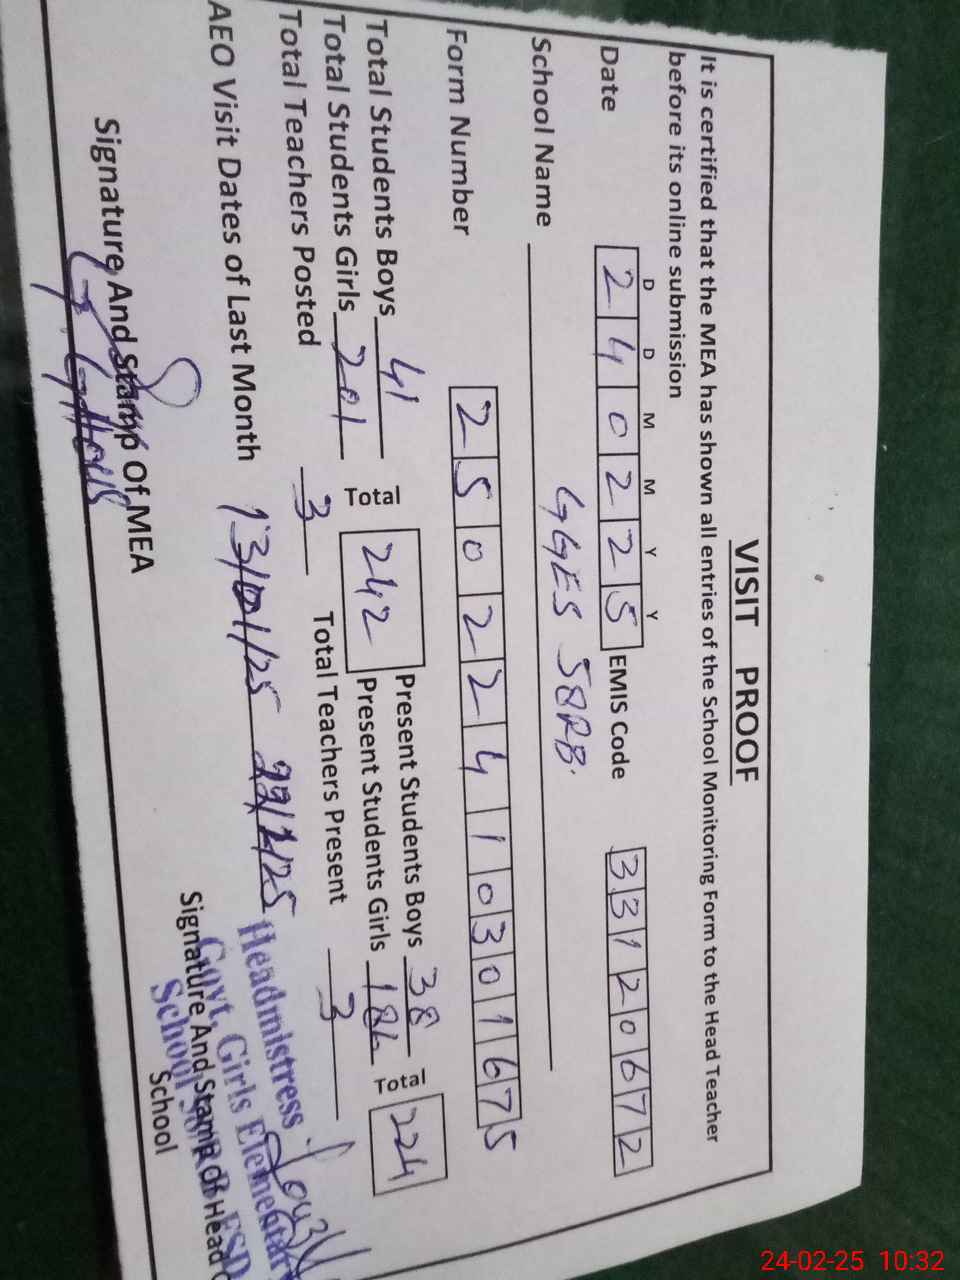 VISIT PROOF
It is certified that the MEA has shown all entries of the School Monitoring Form to the Head Teacher
before its online submission
D D M M Y Y
Date 2 4 0 2 2 5 EMIS Code 3 3 1 2 0 6 7 2
School Name GGES 58RB.
Form Number 2 5 0 2 2 4 1 0 3 0 1 6 7 5
Total Students Boys 41 Total 242 Present Students Boys 38 Total 224
Total Students Girls 201 Present Students Girls 186
Total Teachers Posted 3 Total Teachers Present 3
AEO Visit Dates of Last Month 13/01/25 22/1/25
Headmistress
Govt. Girls Elementary
School FSD
Signature And Stamp Of MEA Signature And Stamp Of Head
School
24-02-25 10:32